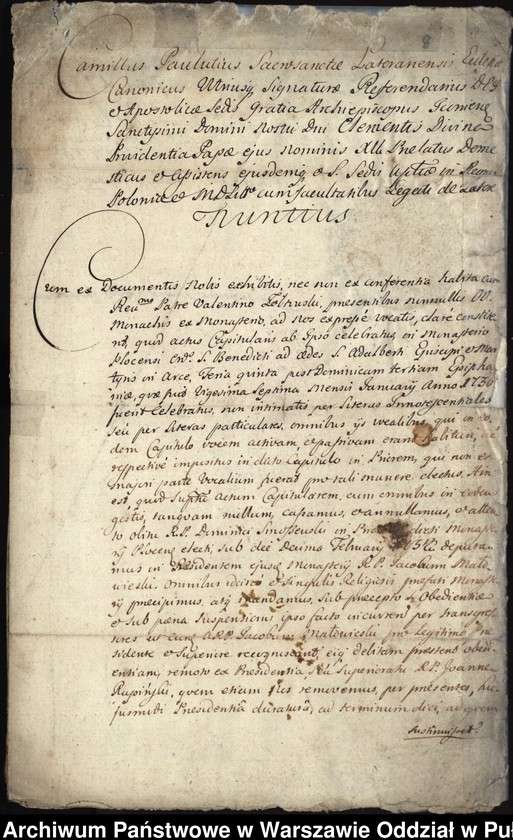 8
Camillus Paulutius Sacrosanctæ Lateranensis Eccles
Canonicus Utriusq Signaturæ Referendarius D. E.
et Apostolicæ Sedis Gratia Archiepiscopus Iconien
Sanctissimi Domini Nostri Dni Clementis Divina
Providentia Papæ ejus nominis XII Prælatus Dome
sticus et Assistens ejusdemq et S. Sedis in
Poloniæ et M. D. Litt. cum facultatibus Legati de Latere
Nuntius
Cum ex Documentis Nobis exhibitis, nec non ex conferentia habita cum
Reu. Patre Valentino presentibus nonnullis
Monachis ex Monasterio, ad nos expresse vocatis, clare constite
rit, quod actus Capitularis ab Ipso celebratus in Monasterio
Plocensi Ord. S. Benedicti ad ædes S. Adalberti Episcopi et Mar
tyris in Arce, Feria quinta post Dominicam tertiam Epipha
niæ, quæ fuit Vigesima Septima Mensis January Anno
fuerit celebratus, non intimatis per Literas Innotescentiales
seu per Literas particulares, omnibus ijs vocalibus, qui in eo
dem Capitulo vocem activam et passivam erant habituri, ac
respective impositus in dicto Capitulo in Priorem, qui non ex
majori parte Vocalium fuerat pro tali munere electus. Hinc
est quod Actum Capitularem, cum omnibus in eo
gestis, tanquam nullum, cassamus, et annullamus, et
to obitu R. P. Dominici in dicti Monaste
rij Plocen electi, sub die decima February deputa
mus in Præsidentem ejusq Monasterij R. P. Jacobum
omnibus idcirco et Singulis Religiosis præfati Monaste
rij præcipimus, atq mandamus, sub præcepto S. Obedientiæ
et sub pæna Suspensionis ipso facto incurren per transgres
sores ut R. P. Jacobum pro Legitimo Præ
sidente et Superiore recognoscant, eiq debitam præstent obedi
entiam, remoto ex Præsidentia, seu Superioratu R. P. Joanne
quem etiam Nos removemus, per præsentes, hu
jusmodi Præsidentia duratura, ad terminum dici, ad quem
Archiwum Państwowe w Warszawie Oddział w Puł